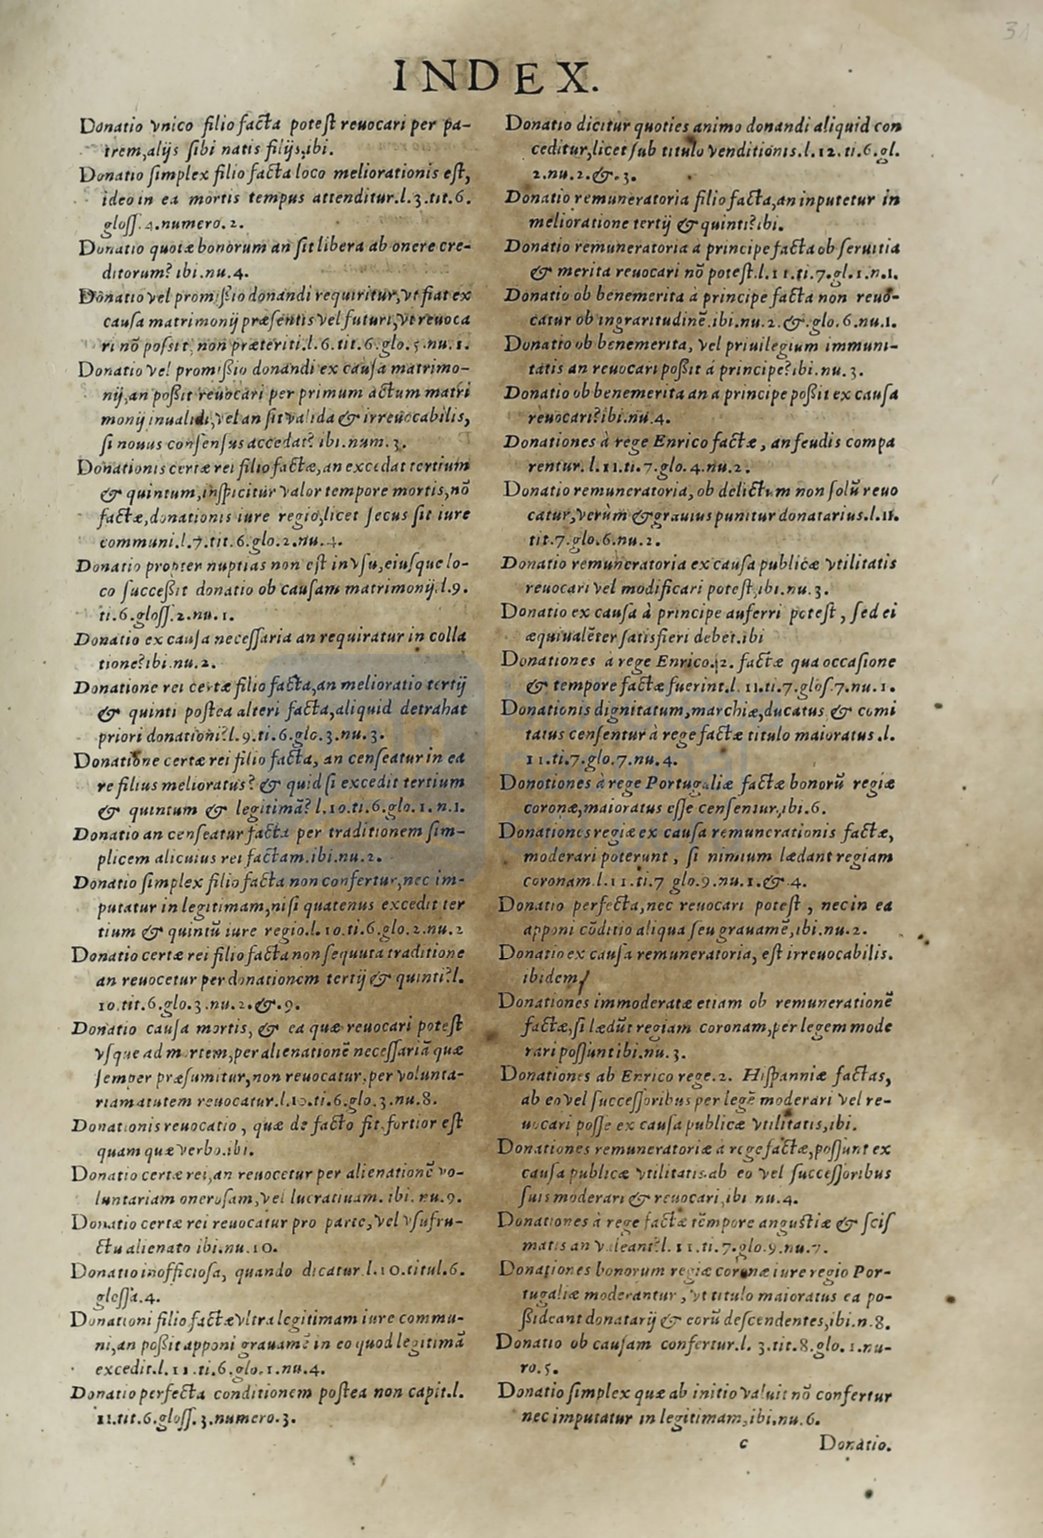 31
INDEX.
Donatio vnico filio facta potest reuocari per pa-
trem, alijs sibi natis filijs, ibi.
Donatio simplex filio facta loco meliorationis est,
ideo in ea mortis tempus attenditur. l. 3. tit. 6.
gloss. 4. numero. 2.
Donatio quotæ bonorum an sit libera ab onere cre-
ditorum? ibi. nu. 4.
Donatio vel promissio donandi requiritur, vt fiat ex
causa matrimonij præsentis vel futuri, vt reuoca
ri nõ possit, non præteriti. l. 6. tit. 6. glo. 5. nu. 1.
Donatio vel promissio donandi ex causa matrimo-
nij, an possit reuocari per primum actum matri
monij inualidi, vel an sit valida & irreuocabilis,
si nouus consensus accedat? ibi. num. 3.
Donationis certæ rei filio factæ, an excedat tertium
& quintum, inspicitur valor tempore mortis, nõ
factæ, donationis iure regio, licet secus sit iure
communi. l. 7. tit. 6. glo. 2. nu. 4.
Donatio propter nuptias non est in vsu, eiusque lo-
co successit donatio ob causam matrimonij. l. 9.
ti. 6. gloss. 2. nu. 1.
Donatio ex causa necessaria an requiratur in colla
tione? ibi. nu. 2.
Donatione rei certæ filio facta, an melioratio tertij
& quinti postea alteri facta, aliquid detrahat
priori donationi? l. 9. ti. 6. glo. 3. nu. 3.
Donatione certæ rei filio facta, an censeatur in ea
re filius melioratus? & quid si excedit tertium
& quintum & legitimã? l. 10. ti. 6. glo. 1. n. 1.
Donatio an censeatur facta per traditionem sim-
plicem alicuius rei factam. ibi. nu. 2.
Donatio simplex filio facta non confertur, nec im-
putatur in legitimam, nisi quatenus excedit ter
tium & quintũ iure regio. l. 10. ti. 6. glo. 2. nu. 2
Donatio certæ rei filio facta non sequuta traditione
an reuocetur per donationem tertij & quinti? l.
10. tit. 6. glo. 3. nu. 2. &. 9.
Donatio causa mortis, & ea quæ reuocari potest
vsque ad mortem, per alienationẽ necessariã quæ
semper præsumitur, non reuocatur, per volunta-
riam autem reuocatur. l. 10. ti. 6. glo. 3. nu. 8.
Donationis reuocatio, quæ de facto fit, fortior est
quam quæ verbo. ibi.
Donatio certæ rei, an reuocetur per alienationẽ vo-
luntariam onerosam, vel lucratiuam. ibi. nu. 9.
Donatio certæ rei reuocatur pro parte, vel vsufru-
ctu alienato ibi. nu. 10.
Donatio inofficiosa, quando dicatur. l. 10. titul. 6.
glossa. 4.
Donationi filio factæ vltra legitimam iure commu-
ni, an possit apponi grauamẽ in eo quod legitimã
excedit. l. 11. ti. 6. glo. 1. nu. 4.
Donatio perfecta conditionem postea non capit. l.
11. tit. 6. gloss. 3. numero. 3.
Donatio dicitur quoties animo donandi aliquid con
ceditur, licet sub titulo venditionis. l. 12. ti. 6. gl.
2. nu. 2. &. 3.
Donatio remuneratoria filio facta, an inputetur in
melioratione tertij & quinti? ibi.
Donatio remuneratoria a principe facta ob seruitia
& merita reuocari nõ potest. l. 11. ti. 7. gl. 1. n. 1.
Donatio ob benemerita à principe facta non reuo-
catur ob ingratitudinẽ. ibi. nu. 2. &. glo. 6. nu. 1.
Donatio ob benemerita, vel priuilegium immuni-
tatis an reuocari possit à principe? ibi. nu. 3.
Donatio ob benemerita an a principe possit ex causa
reuocari? ibi. nu. 4.
Donationes à rege Enrico factæ, an feudis compa
rentur. l. 11. ti. 7. glo. 4. nu. 2.
Donatio remuneratoria, ob delictum non solũ reuo
catur, verùm & grauius punitur donatarius. l. 11.
tit. 7. glo. 6. nu. 2.
Donatio remuneratoria ex causa publicæ vtilitatis
reuocari vel modificari potest, ibi. nu. 3.
Donatio ex causa à principe auferri potest, sed ei
æquiualẽter satisfieri debet. ibi
Donationes à rege Enrico. 2. factæ qua occasione
& tempore factæ fuerint. l. 11. ti. 7. glos. 7. nu. 1.
Donationis dignitatum, marchiæ, ducatus & comi
tatus censentur à rege factæ titulo maioratus. l.
11. ti. 7. glo. 7. nu. 4.
Donotiones à rege Portugaliæ factæ bonorũ regiæ
coronæ, maioratus esse censentur, ibi. 6.
Donationes regiæ ex causa remunerationis factæ,
moderari poterunt, si nimium lædant regiam
coronam. l. 11. ti. 7 glo. 9. nu. 1. &. 4.
Donatio perfecta, nec reuocari potest, nec in ea
apponi cõditio aliqua seu grauamẽ, ibi. nu. 2.
Donatio ex causa remuneratoria, est irreuocabilis.
ibidem
Donationes immoderatæ etiam ob remunerationẽ
factæ, si lædũt regiam coronam, per legem mode
rari possunt ibi. nu. 3.
Donationes ab Enrico rege. 2. Hispanniæ factas,
ab eo vel successoribus per legẽ moderari vel re-
uocari posse ex causa publicæ vtilitatis, ibi.
Donationes remuneratoriæ à rege factæ, possunt ex
causa publicæ vtilitatis. ab eo vel successoribus
suis moderari & reuocari, ibi nu. 4.
Donationes à rege factæ tẽmpore angustiæ & scis
matis an valeant? l. 11. ti. 7. glo. 9. nu. 7.
Donationes bonorum regiæ coronæ iure regio Por-
tugaliæ moderantur, vt titulo maioratus ea po-
ssideant donatarij & eorũ descendentes, ibi. n. 8.
Donatio ob causam confertur. l. 3. tit. 8. glo. 1. nu-
ro. 5.
Donatio simplex quæ ab initio valuit nõ confertur
nec imputatur in legitimam, ibi. nu. 6.
c Donatio.